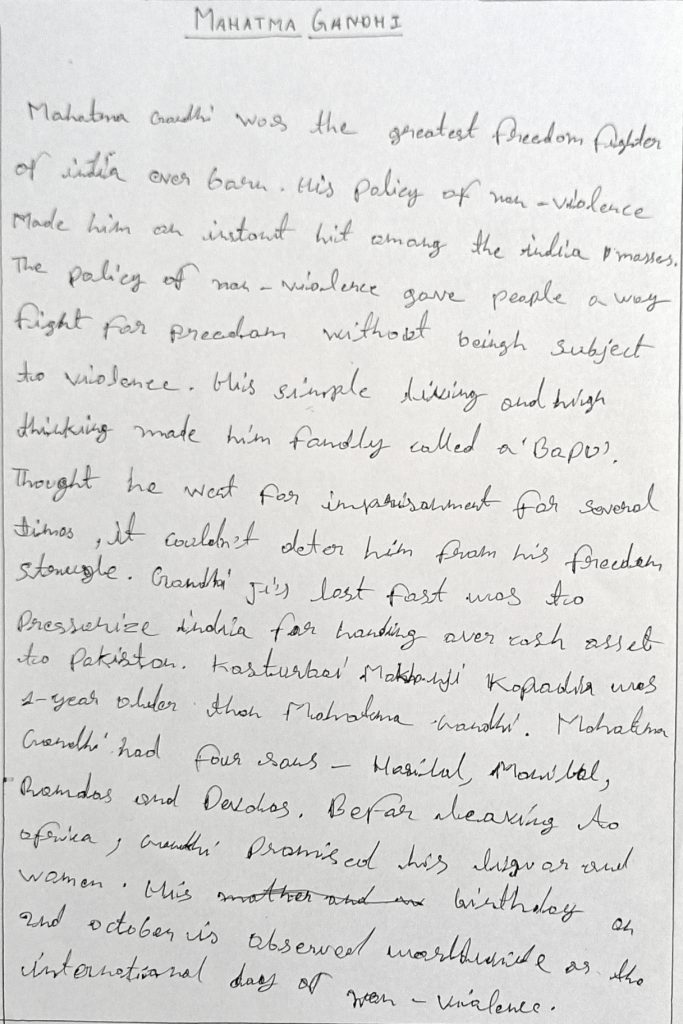 MAHATMA GANDHI
Mahatma Gandhi was the greatest freedom fighter
of india ever barn. His policy of non-violence
Made him an instant hit among the india masses.
The policy of non-violence gave people a way
fight for freedom without beingh subject
to violence. His simple living and high
thinking made him fandly called a 'Bapu'.
Thought he went for imprisonment for several
times, it couldn't deter him from his freedom
struggle. Gandhi ji's last fast was to
pressurize india for handing over cash asset
to Pakistan. Kasturbai Makhanji Kapadia was
1-year older than Mahatma Gandhi. Mahatma
Gandhi had four sons - Harilal, Manilal,
Ramdas and Devdas. Befar leaving to
afrika, Gandhi promised his and
women. His birthday on
2nd october is observed worldwide as the
international day of non-violence.